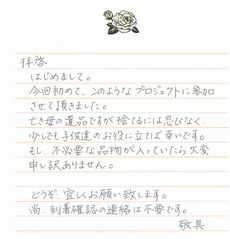 拝啓
はじめまして。
今回初めて、このようなプロジェクトに参加
させて頂きました。
亡き母の遺品ですが捨てるには忍びなく
少しでも子供達のお役に立てば幸いです。
もし、不必要な品物が入っていたら大変
申し訳ありません。
どうぞ、宜しくお願い致します。
尚、到着確認の連絡は不要です。
敬具